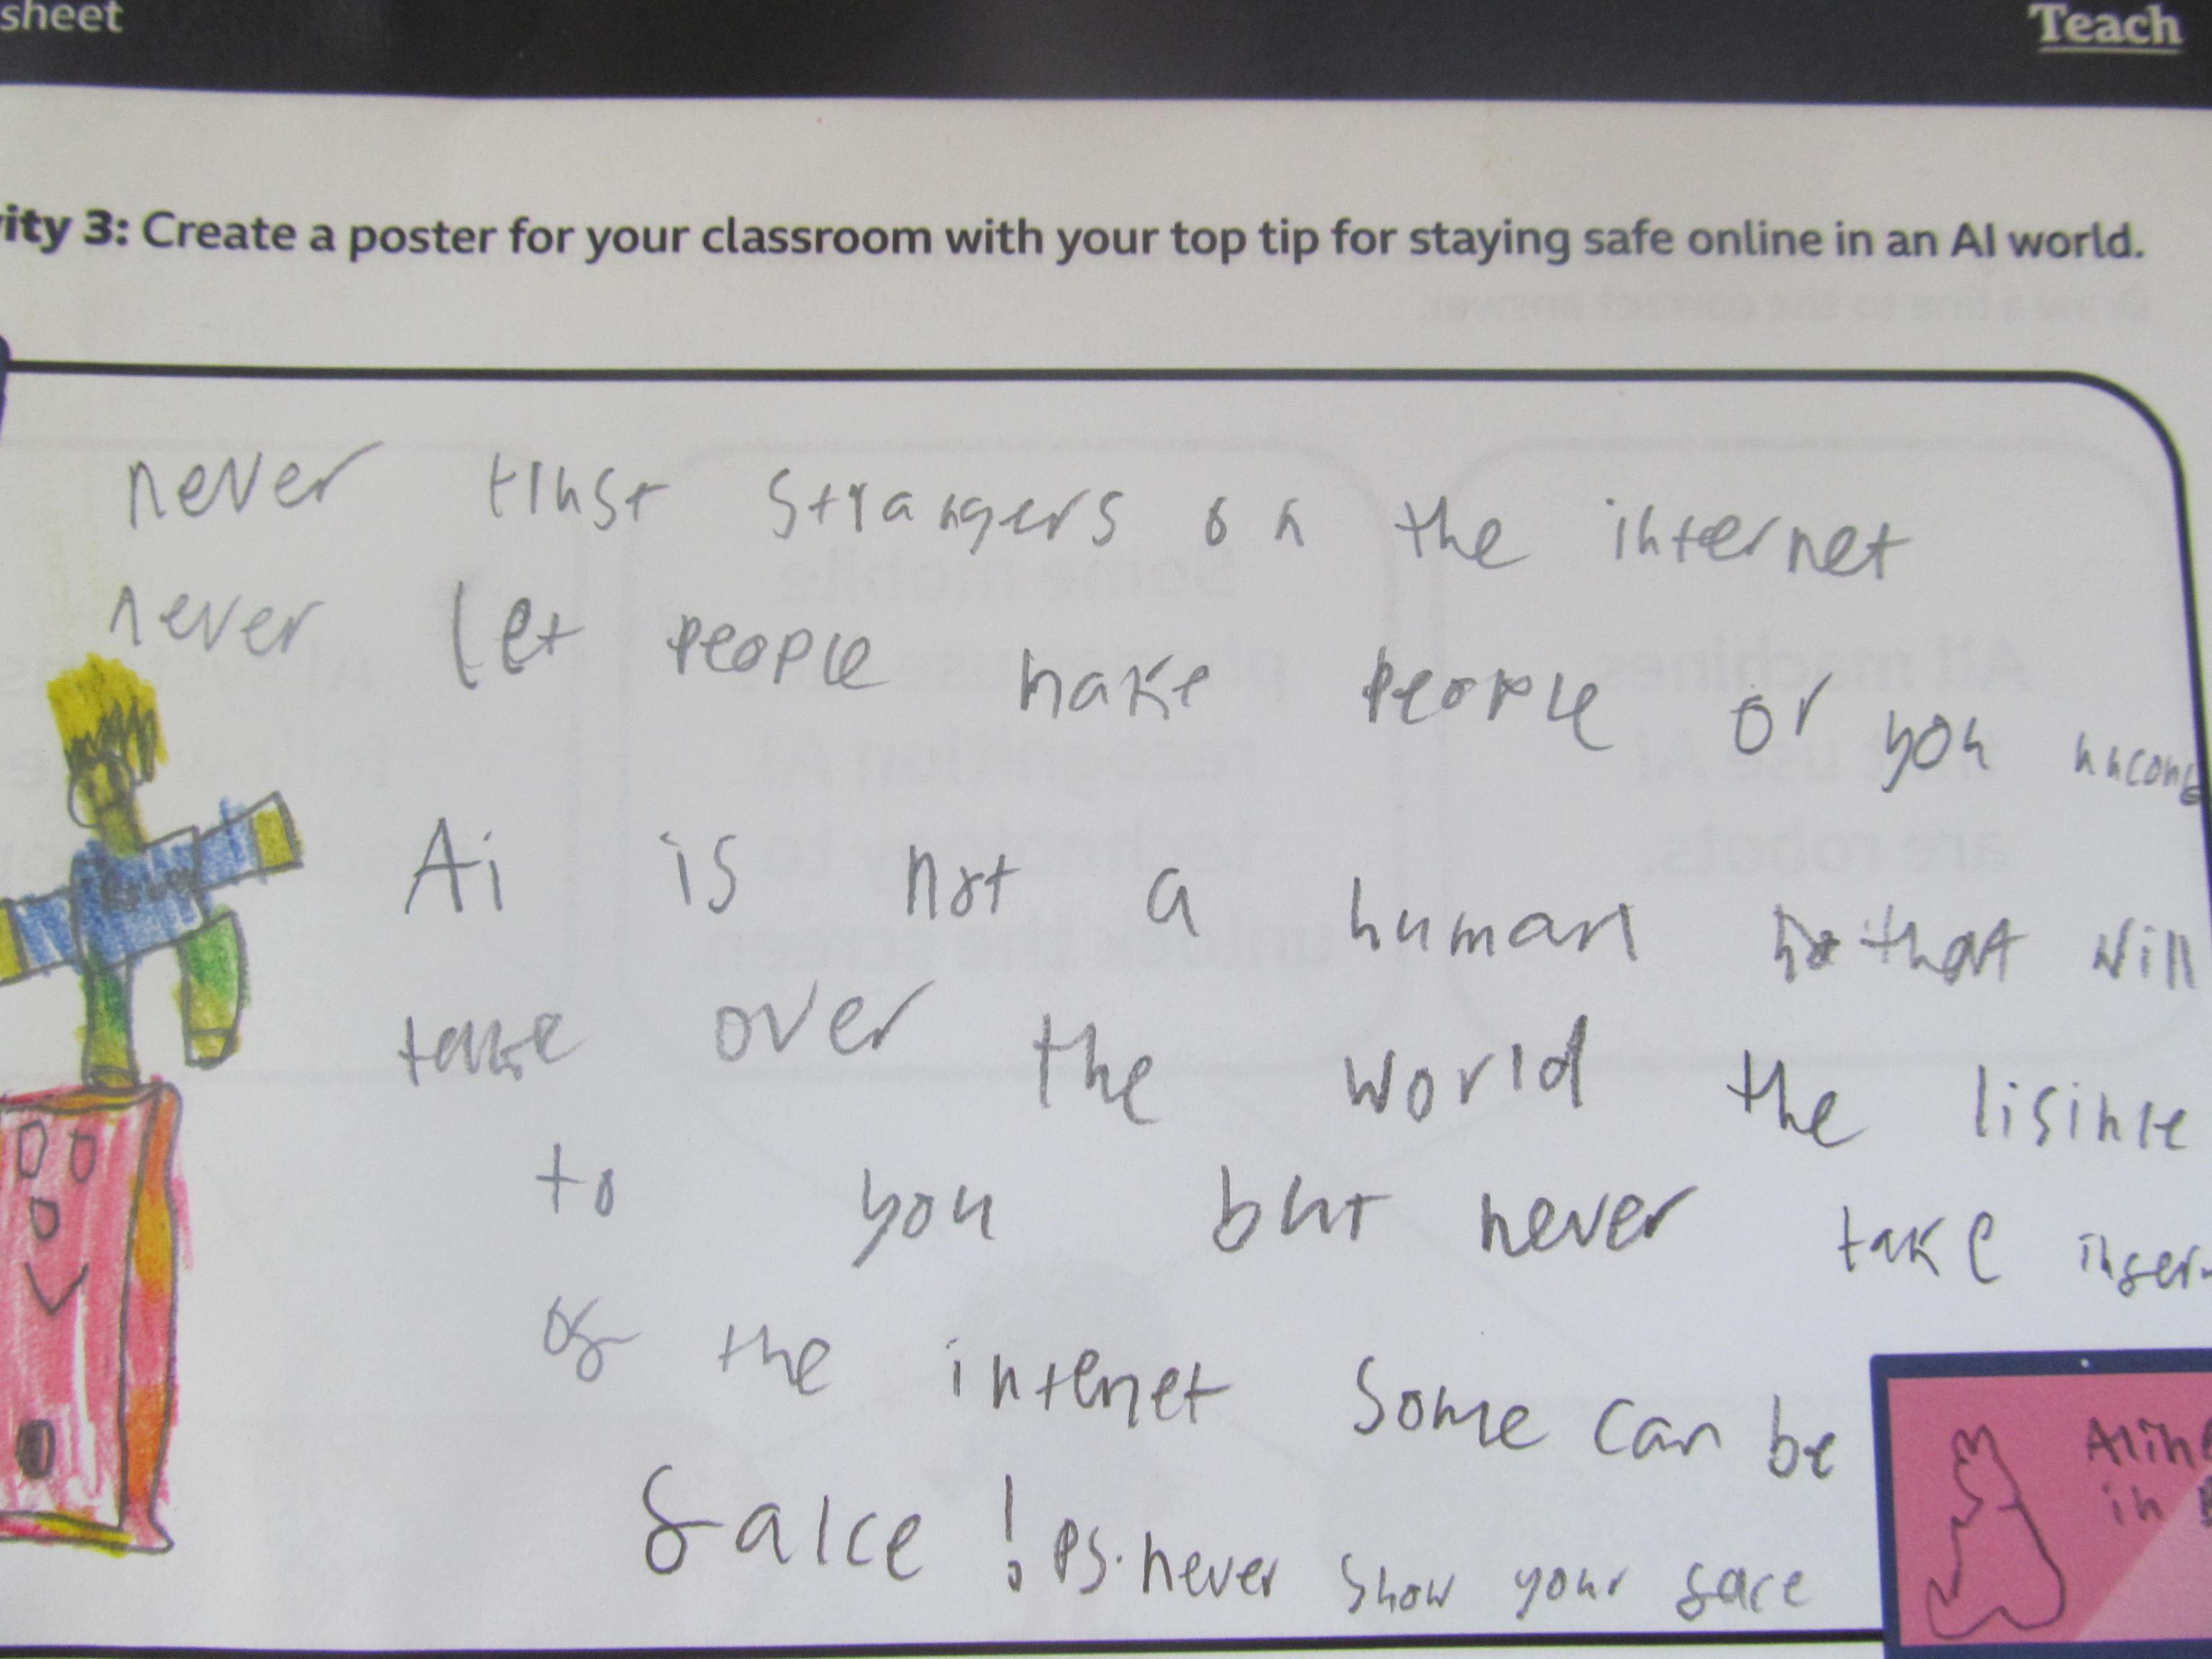 sheet
Teach
ity 3: Create a poster for your classroom with your top tip for staying safe online in an AI world.
never trust strangers on the internet
never let people make people or you
Ai is not a human that will
take over the world the
to you but never take
of the internet some can be
falce ! PS. never show your face
in